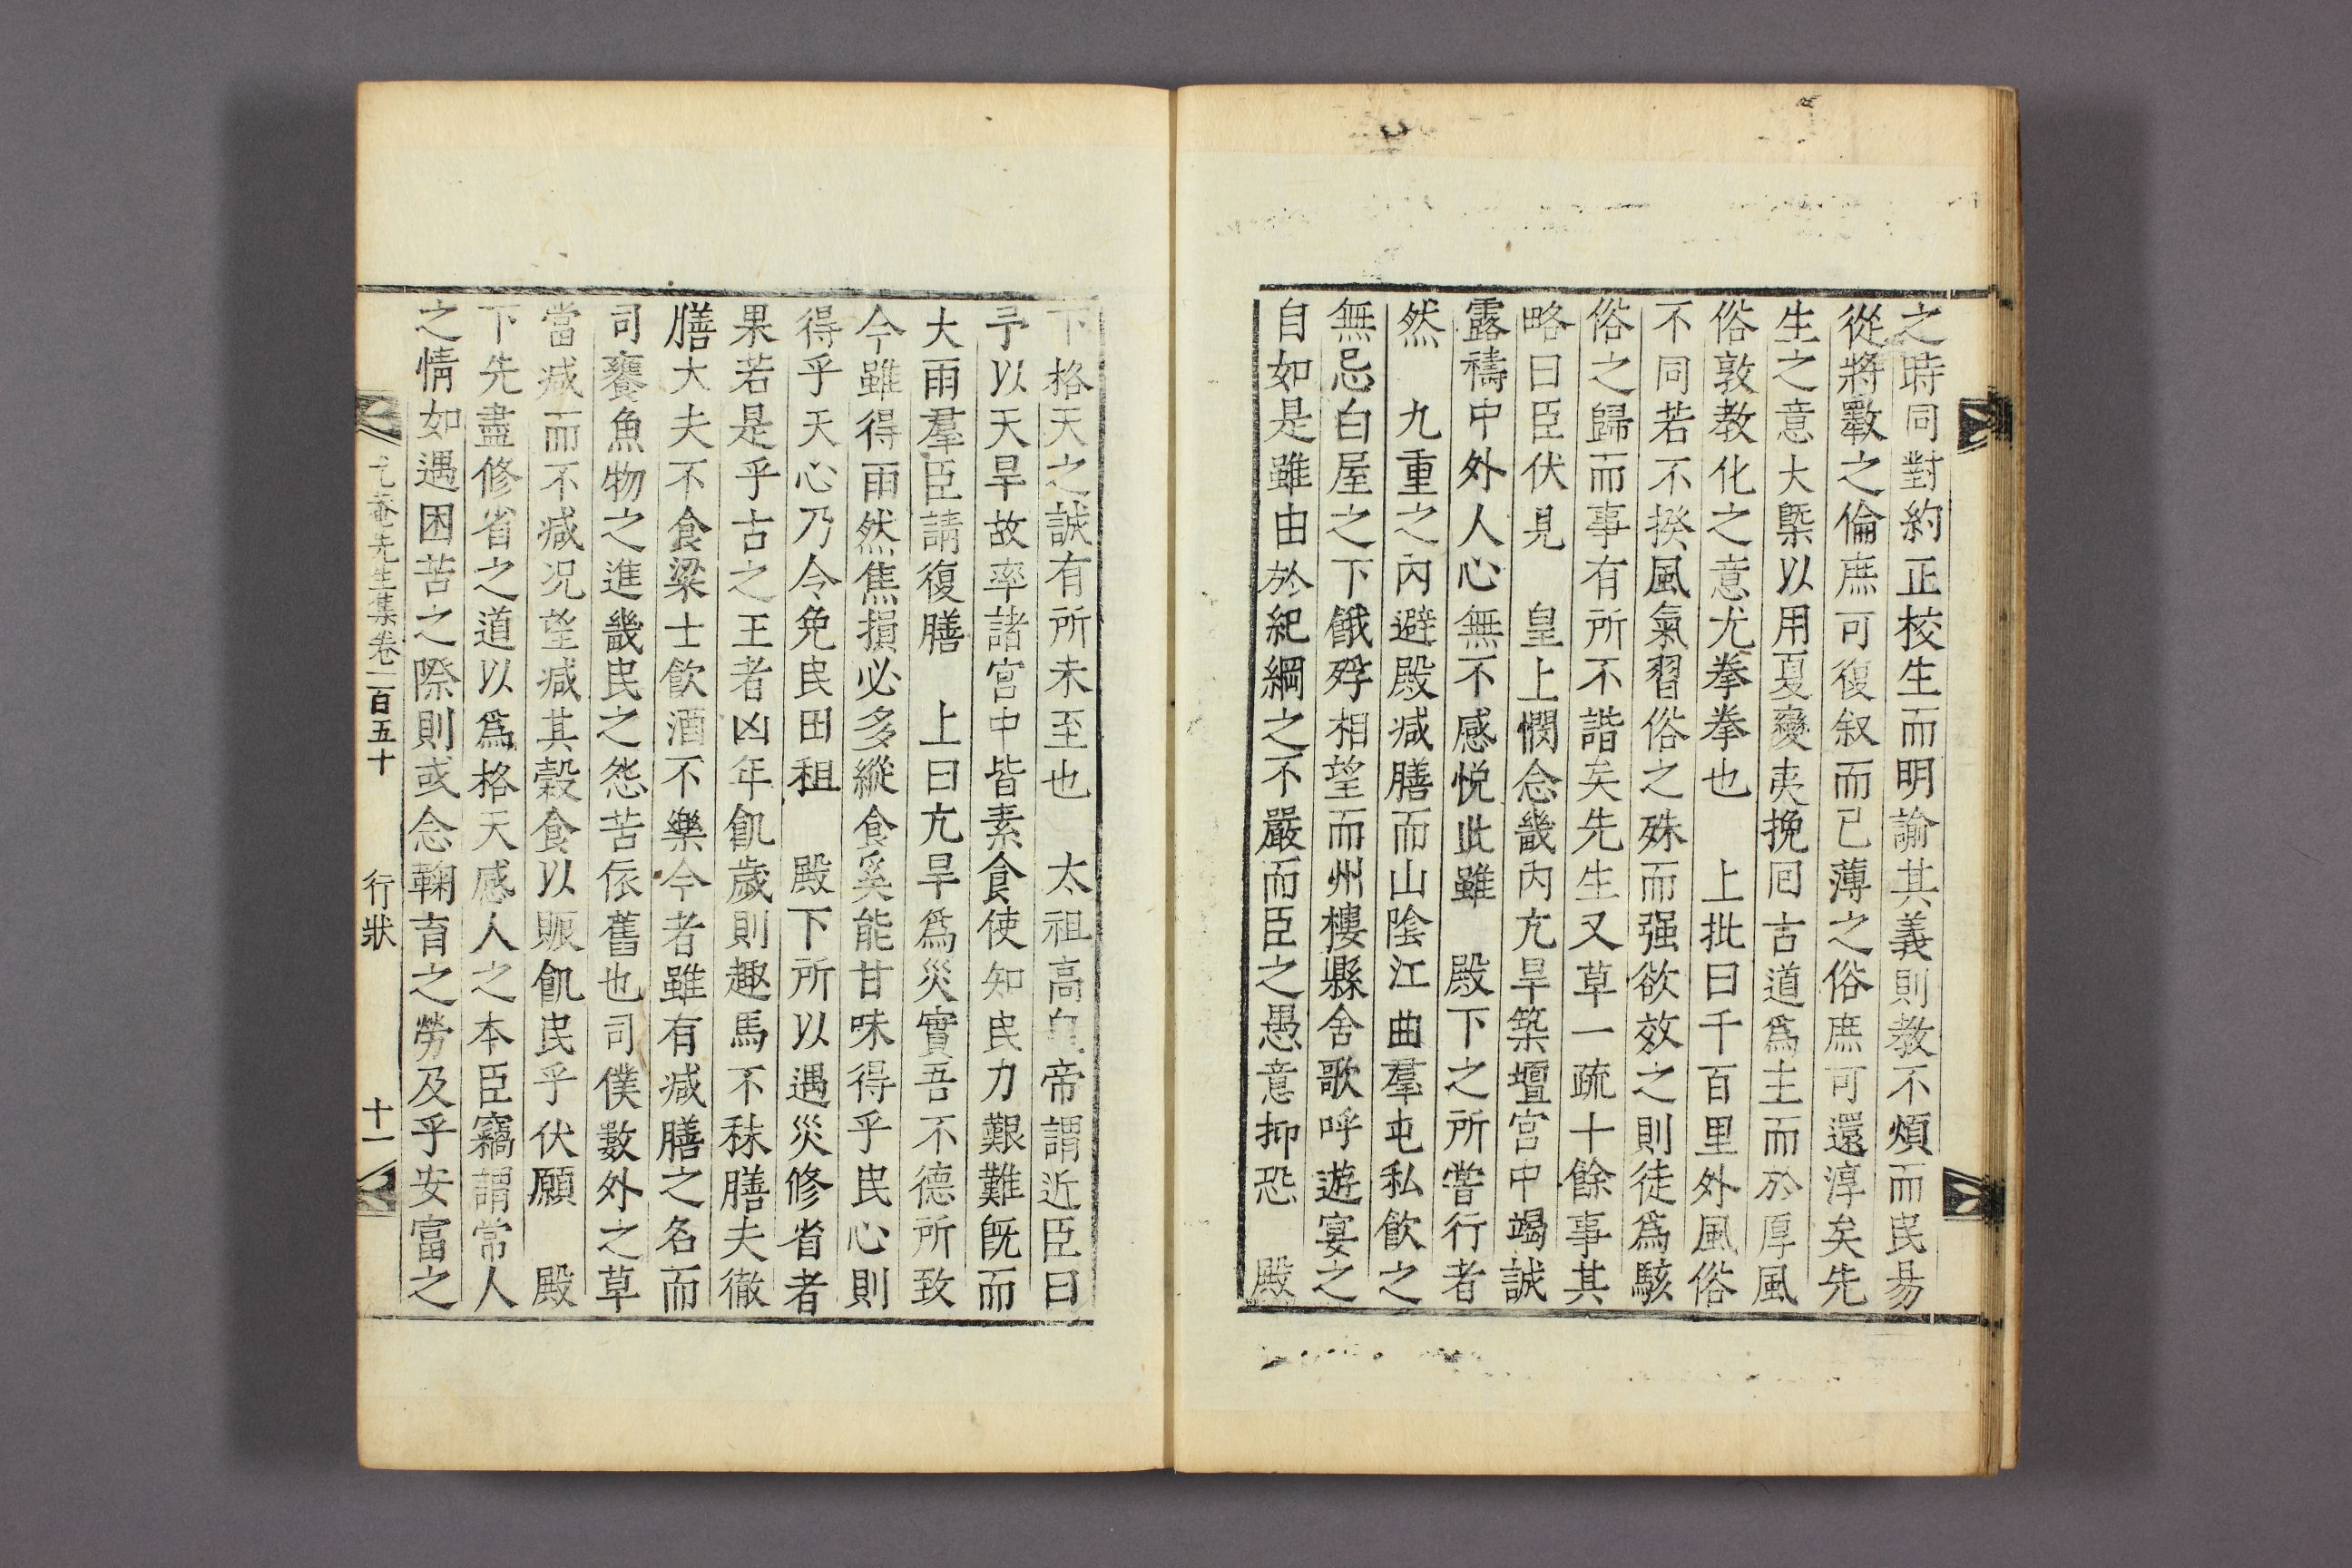 之時同對約正校生而明諭其義則教不煩而民易
從將斁之倫庶可復叙而已薄之俗庶可還淳矣先
生之意大槩以用夏變夷挽囘古道爲主而於厚風
俗敦教化之意尤拳拳也　上批曰千百里外風俗
不同若不揆風氣習俗之殊而强欲效之則徒爲駭
俗之歸而事有所不諧矣先生又草一疏十餘事其
略曰臣伏見　皇上憫念畿內亢旱築壇宮中竭誠
露禱中外人心無不感悅此雖　殿下之所甞行者
然　九重之內避殿减膳而山陰江曲羣屯私飮之
無忌白屋之下餓殍相望而州樓縣舍歌呼遊宴之
自如是雖由於紀綱之不嚴而臣之愚意抑恐　殿
下格天之誠有所未至也　太祖高皇帝謂近臣曰
予以天旱故率諸宮中皆素食使知民力艱難旣而
大雨羣臣請復膳　上曰亢旱爲災實吾不德所致
今雖得雨然焦損必多縱食奚能甘味得乎民心則
得乎天心乃令免民田租　殿下所以遇災修省者
果若是乎古之王者凶年飢歲則趣馬不秣膳夫徹
膳大夫不食粱士飮酒不樂今者雖有减膳之名而
司饔魚物之進畿民之怨苦依舊也司僕數外之草
當减而不减况望减其穀食以賑飢民乎伏願　殿
下先盡修省之道以爲格天感人之本臣竊謂常人
之情如遇困苦之際則或念鞠育之勞及乎安富之
先生集卷一百五十　行狀　十一